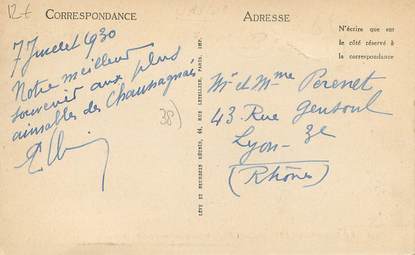 12€
CORRESPONDANCE
7 Juillet 1930
Notre meilleur
souvenir aux plus
aimables des Chaussagnais
38)
LÉVY ET NEURDEIN RÉUNIS, 44, RUE LETELLIER, PARIS, IMP.
ADRESSE
N'écrire que sur
le côté réservé à
la correspondance
Mr et Mme Perenet
43 Rue Gensoul
Lyon-3e
(Rhône)